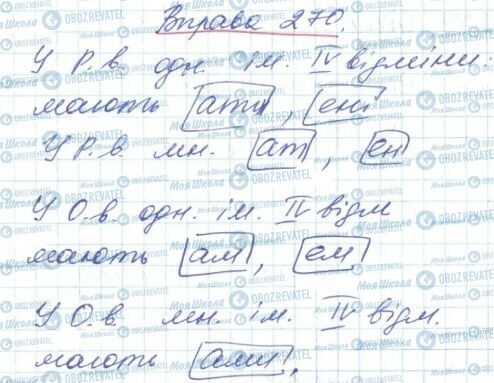 Вправа 270.
У Р.в. одн. ім. IV відміни
мають ати, ені
У Р.в. мн. ат, ен
У О.в. одн. ім. IV відм
мають ам, ем
У О.в. мн. ім. IV відм.
мають ами,